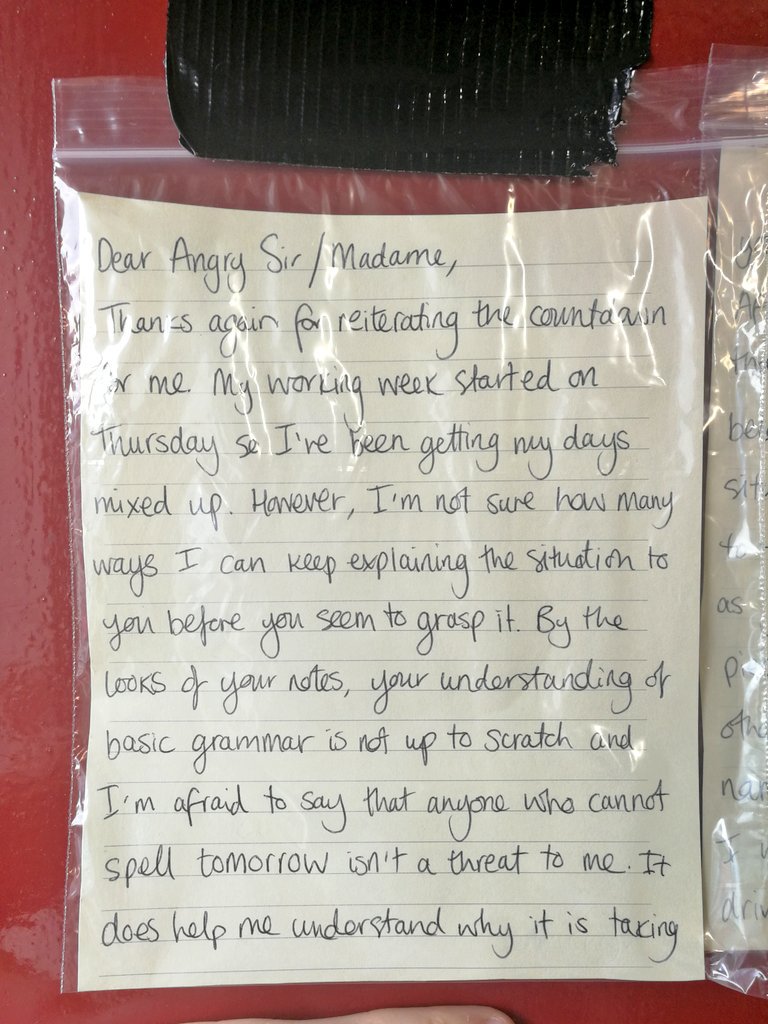 Dear Angry Sir/Madame,
Thanks again for reiterating the countdown
for me. My working week started on
Thursday so I've been getting my days
mixed up. However, I'm not sure how many
ways I can keep explaining the situation to
you before you seem to grasp it. By the
looks of your notes, your understanding of
basic grammar is not up to scratch and
I'm afraid to say that anyone who cannot
spell tomorrow isn't a threat to me. It
does help me understand why it is taking
as